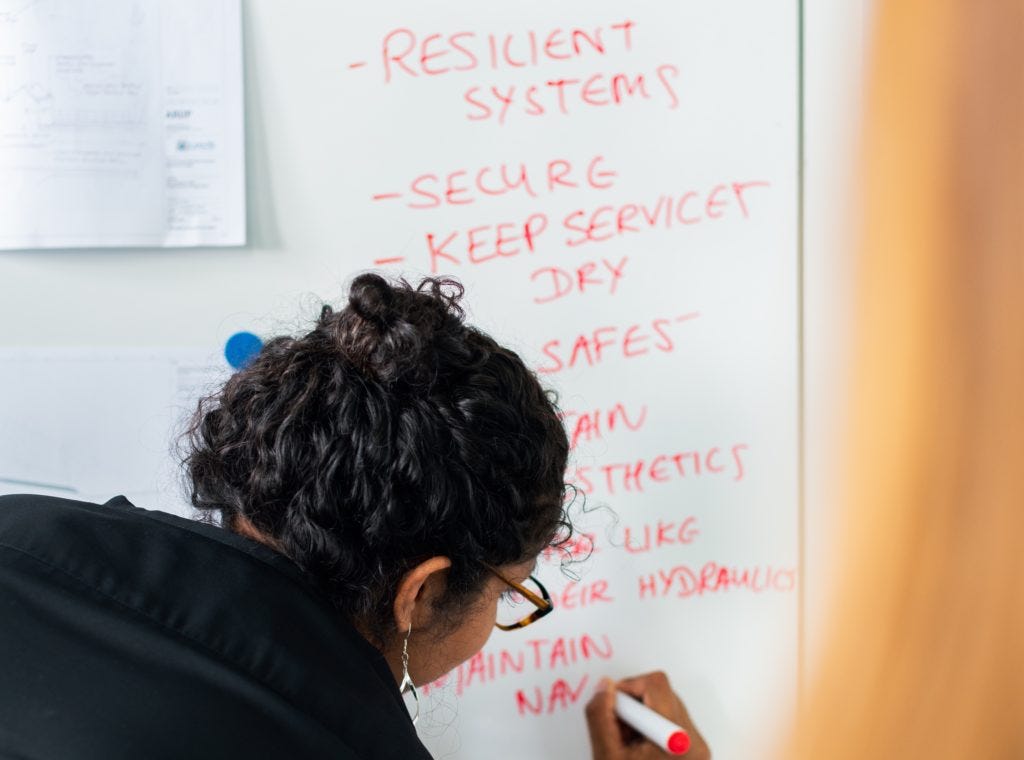 - RESILIENT
SYSTEMS
- SECURE
- KEEP SERVICET
DRY
SAFEST
TAIN
STHETICS
LIKE
EIR HYDRAULICS
MAINTAIN
NAV